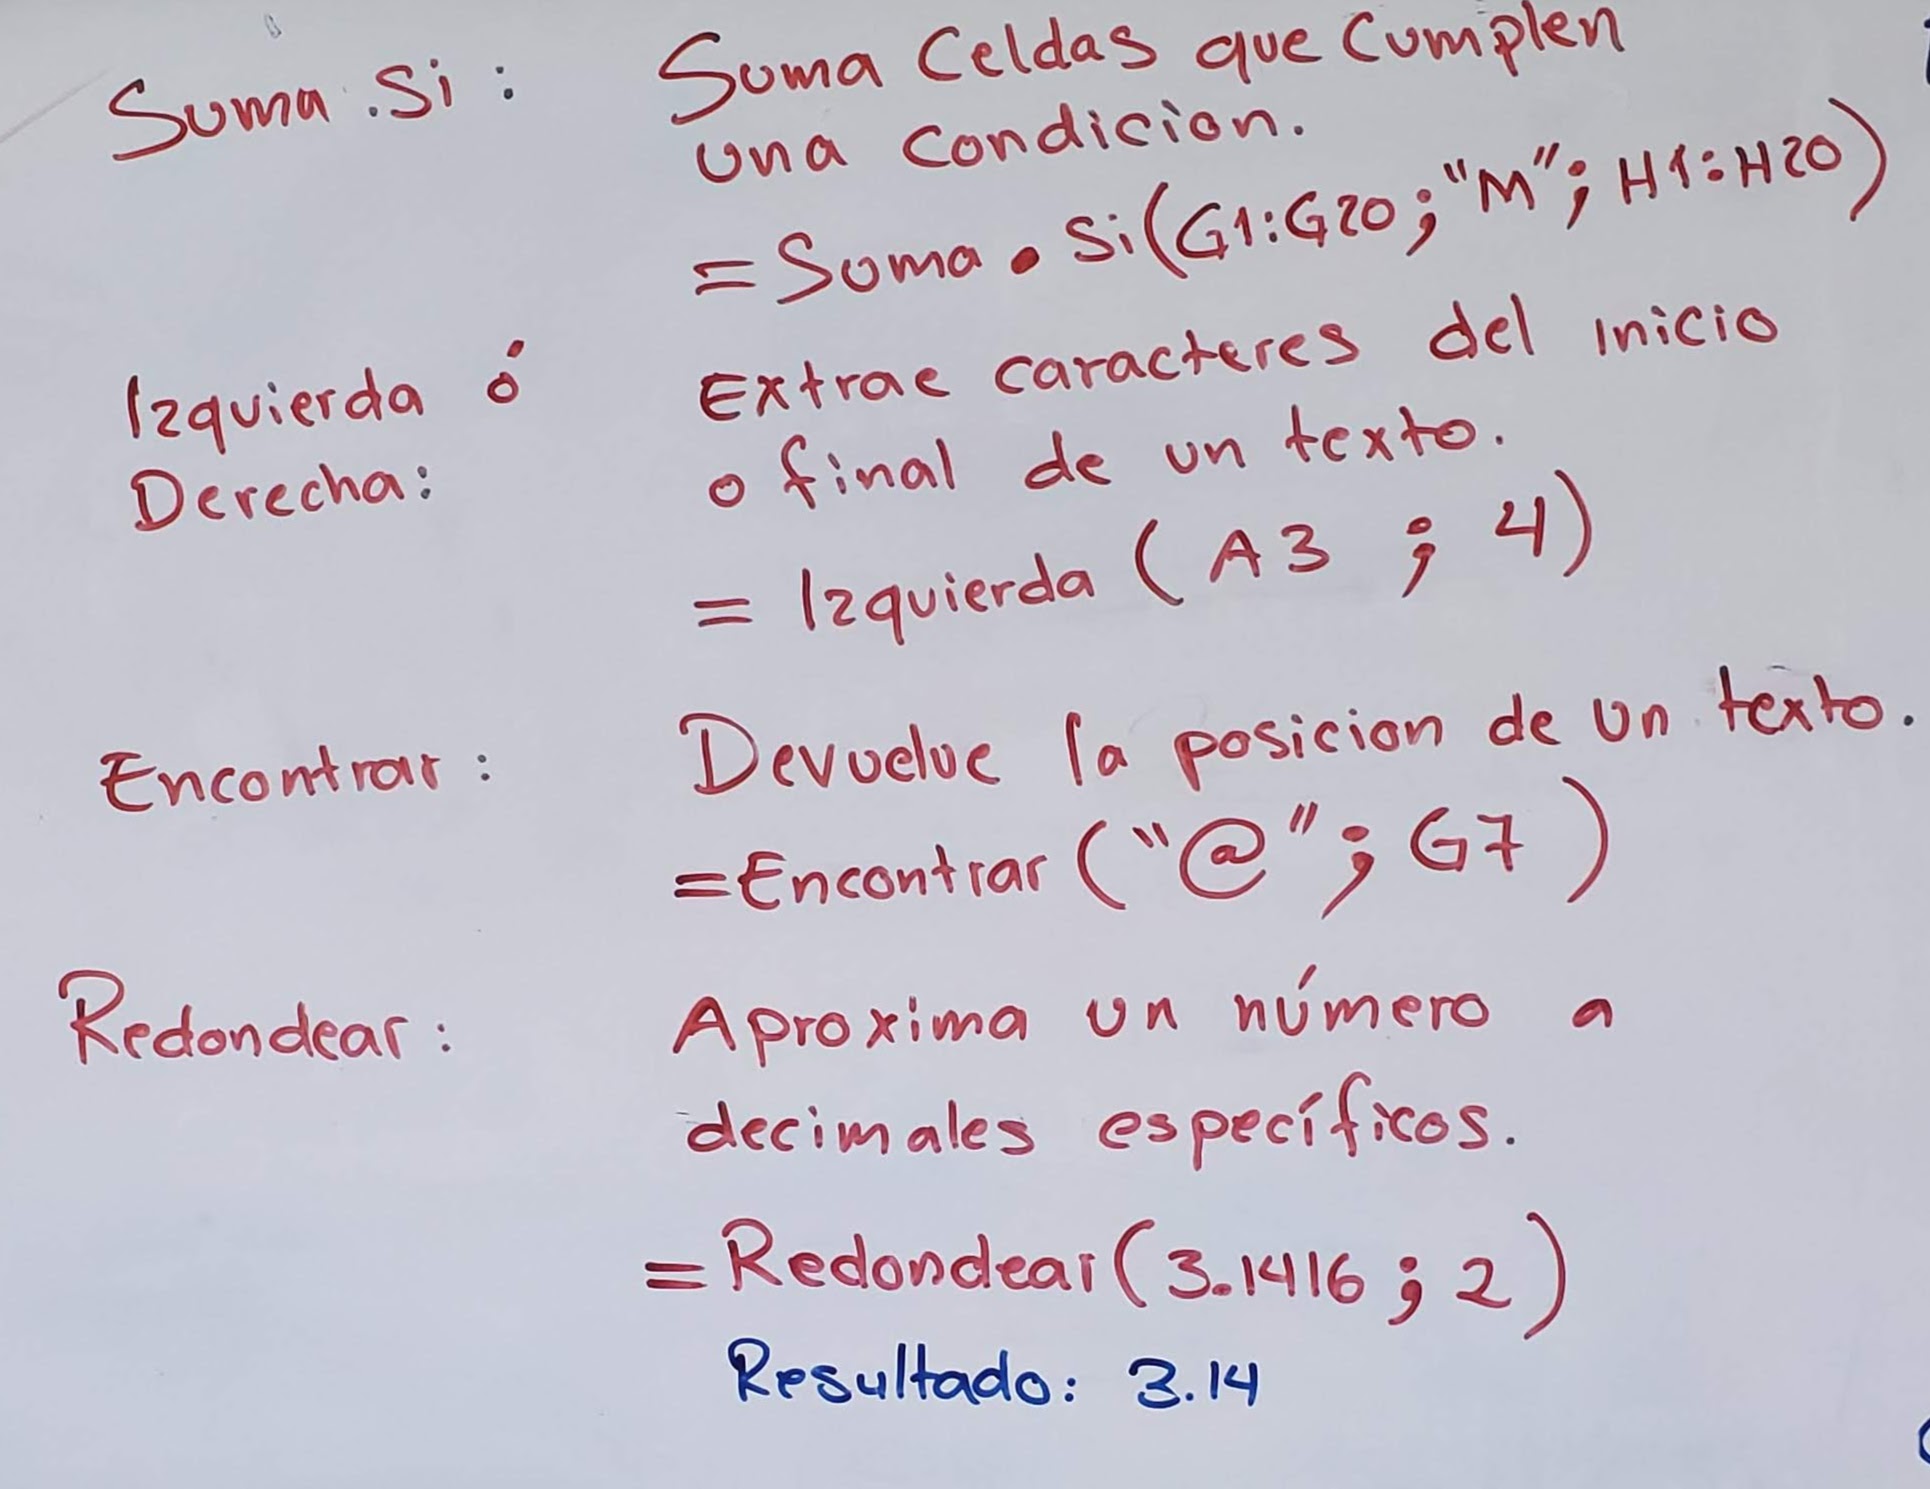 Suma.Si: Suma Celdas que Cumplen
una condicion.
=Suma.Si(G1:G20;"M";H1:H20)
Izquierda ó Extrae caracteres del inicio
Derecha: o final de un texto.
= Izquierda (A3 ; 4)
Encontrar: Devuelve la posicion de un texto.
=Encontrar ("@"; G7)
Redondear: Aproxima un número a
decimales específicos.
=Redondear(3.1416;2)
Resultado: 3.14